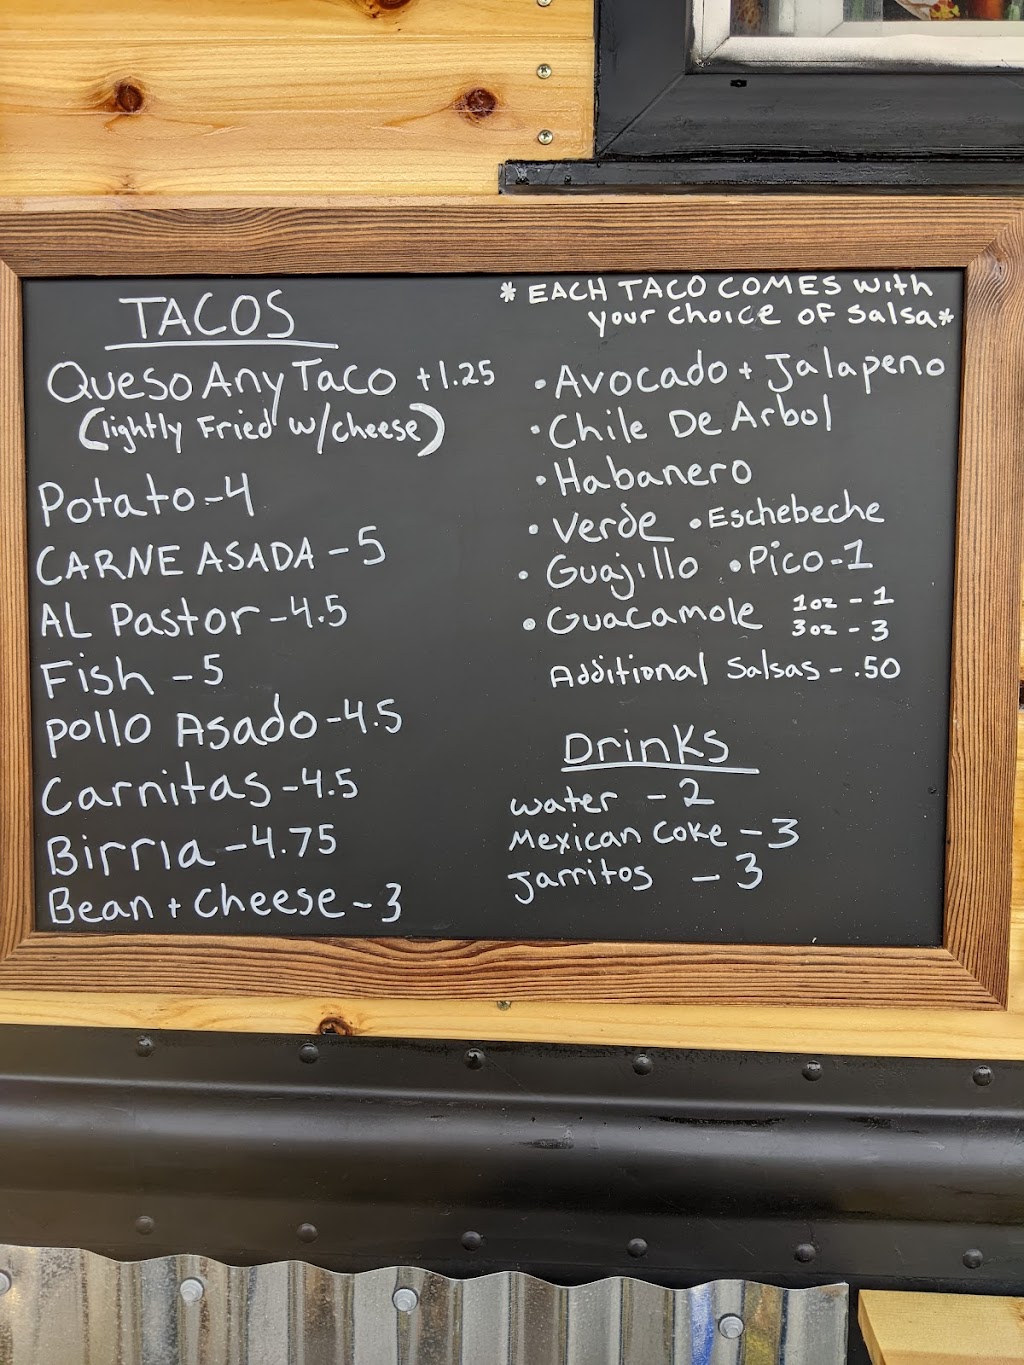 TACOS
Queso Any Taco +1.25
(lightly Fried w/cheese)
Potato - 4
CARNE ASADA - 5
AL Pastor - 4.5
Fish - 5
pollo Asado - 4.5
Carnitas - 4.5
Birria - 4.75
Bean + Cheese - 3
* EACH TACO COMES with
your choice OF salsa *
• Avocado + Jalapeno
• Chile De Arbol
• Habanero
• Verde • Eschebeche
• Guajillo • Pico - 1
• Guacamole 1oz - 1
3oz - 3
Additional Salsas - .50
Drinks
water - 2
Mexican Coke - 3
Jarritos - 3